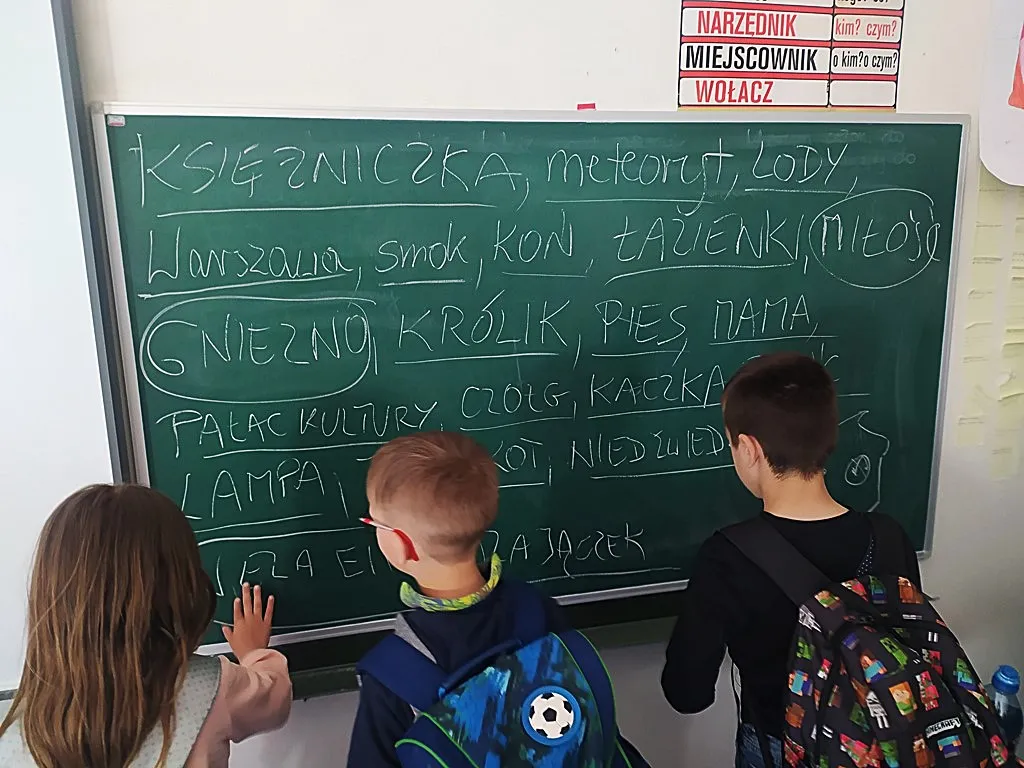 NARZĘDNIK kim? czym?
MIEJSCOWNIK o kim?o czym?
WOŁACZ
KSIĘŻNICZKA, meteoryt, LODY,
Warszawa, smok, KOŃ, ŁAZIENKI, MIŁOŚĆ
GNIEZNO, KRÓLIK, PIES, MAMA,
PAŁAC KULTURY, CZOŁG, KACZKA
LAMPA, KOT, NIEDŹWIED
ZAJĄCZEK
MINECRAFT